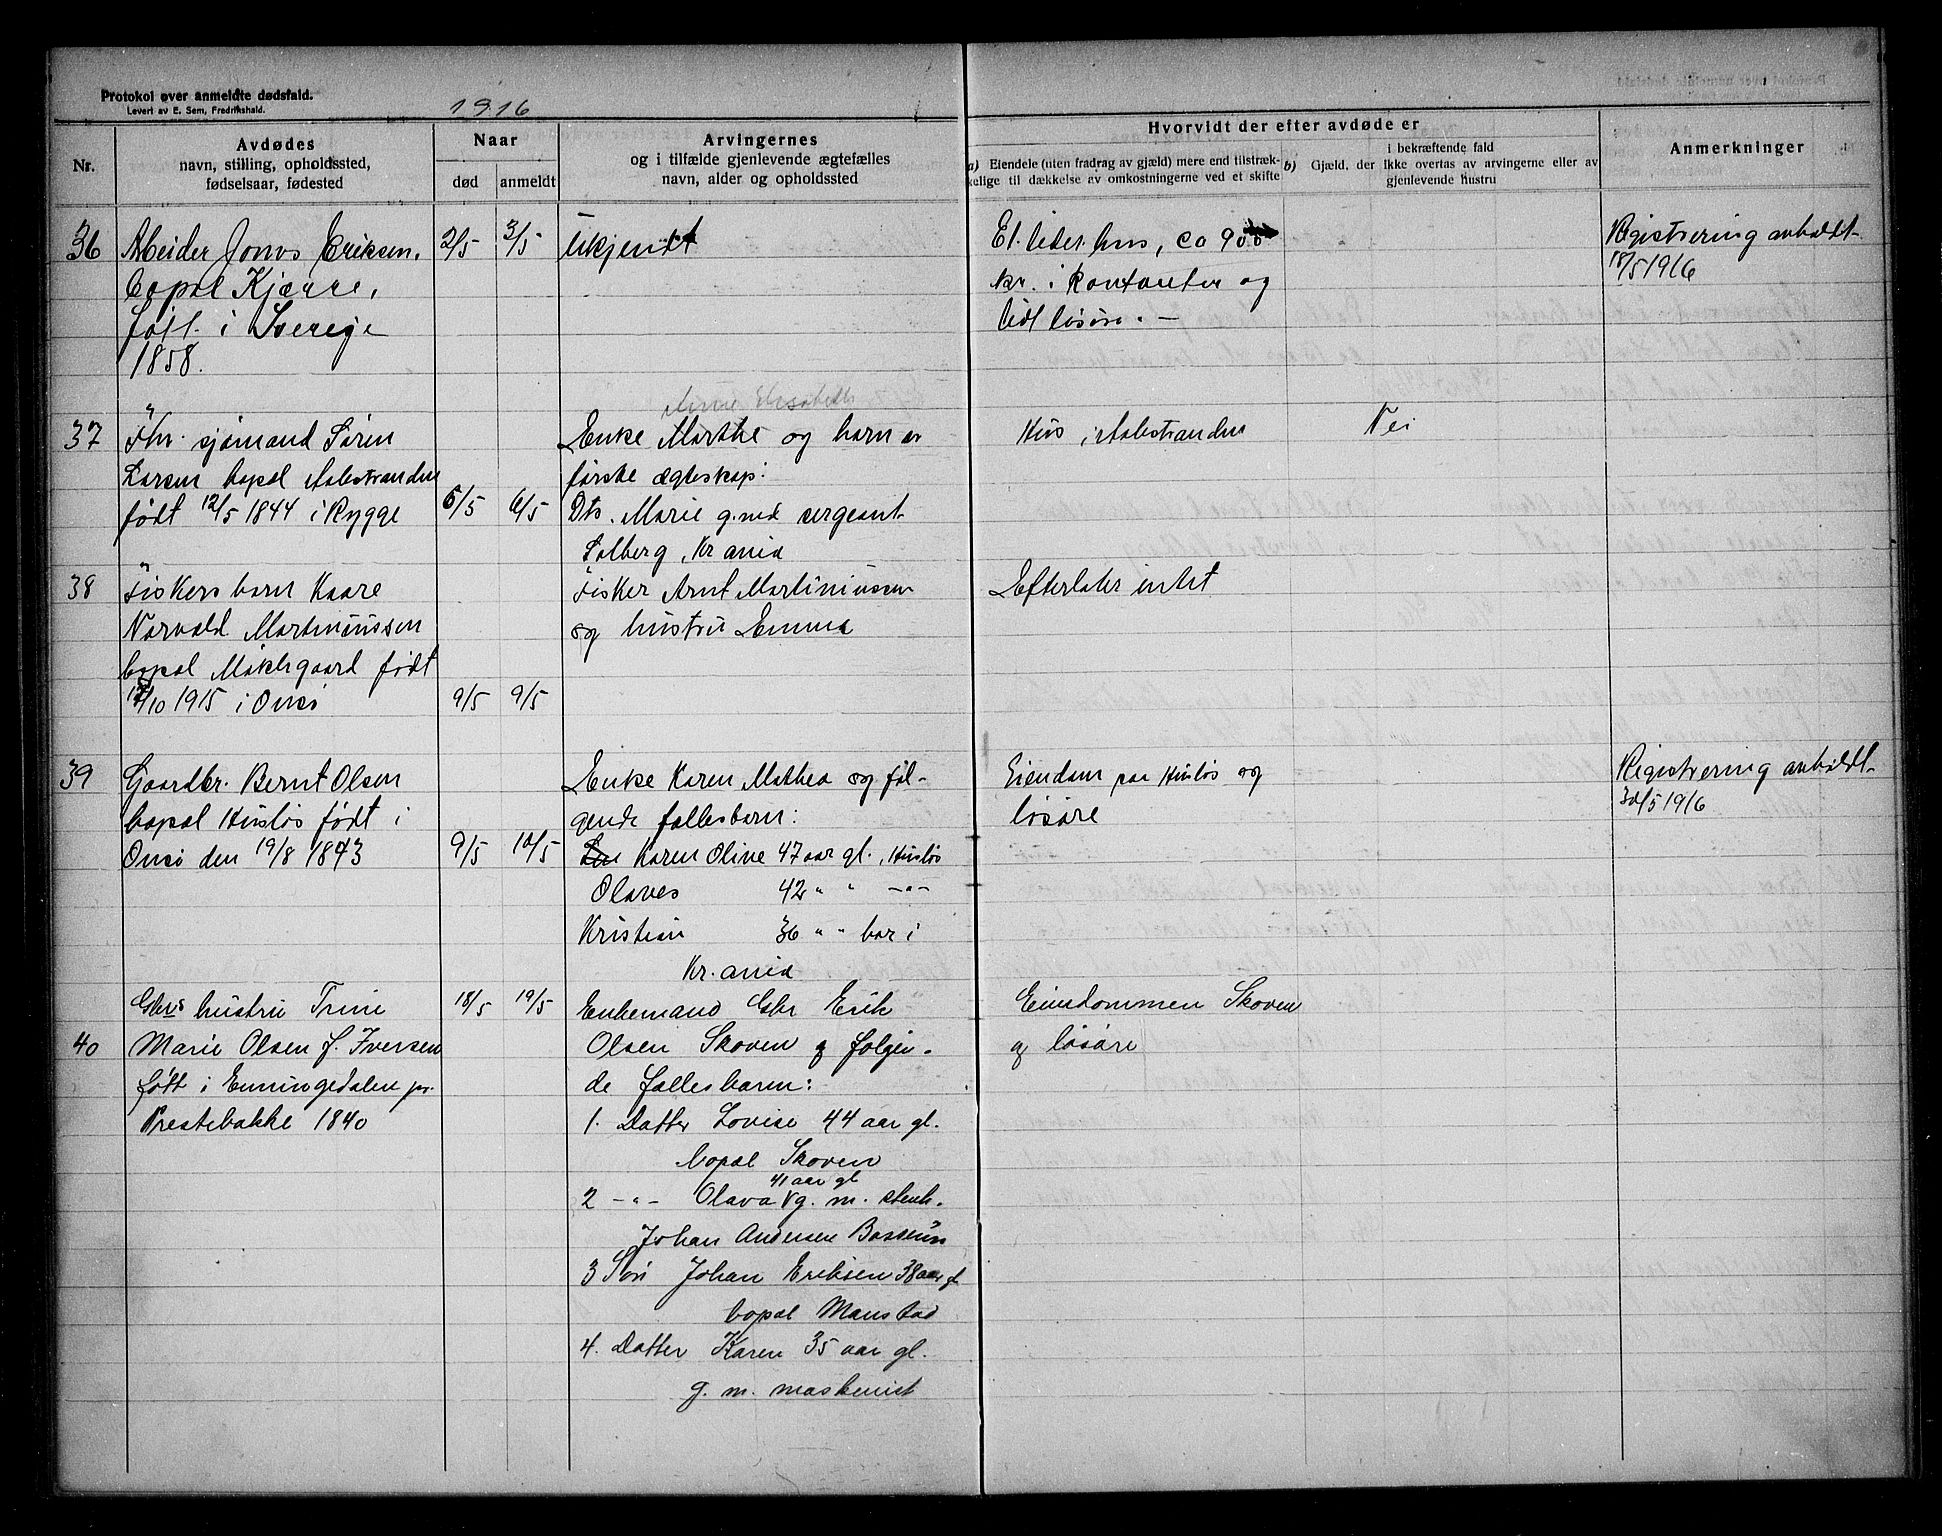 Protokol over anmeldte dødsfald.
Levert av E. Sem, Fredrikshald.
1916
Nr.
Avdødes
navn, stilling, opholdssted,
fødselsaar, fødested
Naar
død
anmeldt
Arvingernes
og i tilfælde gjenlevende ægtefælles
navn, alder og opholdssted
Hvorvidt der efter avdøde er
a) Eiendele (uten fradrag av gjæld) mere end tilstræk-
kelige til dækkelse av omkostningerne ved et skifte
b) Gjæld, der i bekræftende fald
ikke overtas av arvingerne eller av
gjenlevende hustru
Anmerkninger
36
Arbeider Jonas Eriksen,
bopæl Kjære,
født i Sverige
1858.
2/5
3/5
Ukjendt
Et lidet hus, ca 900
kr. i kontanter og
lidt løsøre. —
Registrering avholdt
18/5 1916
37
Fhv. sjømand Søren
Larsen bopæl Aalestranden
født 12/5 1844 i Rygge
5/5
6/5
Anne Elisabeth
Enke Marthe og barn av
første ægteskap:
Dtr. Marie g. med sergeant
Solberg, Kr.ania
Hus i Aalestranden
Nei
38
Fiskers barn Kaare
Norvald Martiniussen
bopæl Møklegaard født
/10 1915 i Onsø
9/5
9/5
Fisker Arnt Martiniussen
og hustru Emma
Efterlater intet
39
Gaardbr. Bernt Olsen
bopæl Husløs født i
Onsø den 19/8 1843
9/5
10/5
Enke Karen Mathea og føl-
gende fællesbarn:
Karen Oline 47 aar gl., Husløs
Olaves 42 " " -"-
Kristian 36 " " bor i
Kr.ania
Eiendom paa Husløs og
løsøre
Registrering avholdt
30/5 1916
40
Gbrs hustru Trine
Marie Olsen f. Iversen
født i Enningedalen pr.
Prestebakke 1840
18/5
19/5
Enkemand Gbr Erik
Olsen Skoven og følgen-
de fællesbarn:
1. Datter Lovise 44 aar gl.
bopæl Skoven
41 aar gl
2 -"- Olava g. m. stenh.
Johan Andersen
3 Søn Johan Eriksen 38 aar gl
bopæl Manstad
4. Datter Karen 35 aar gl.
g. m. maskinist
Eiendommen Skoven
og løsøre